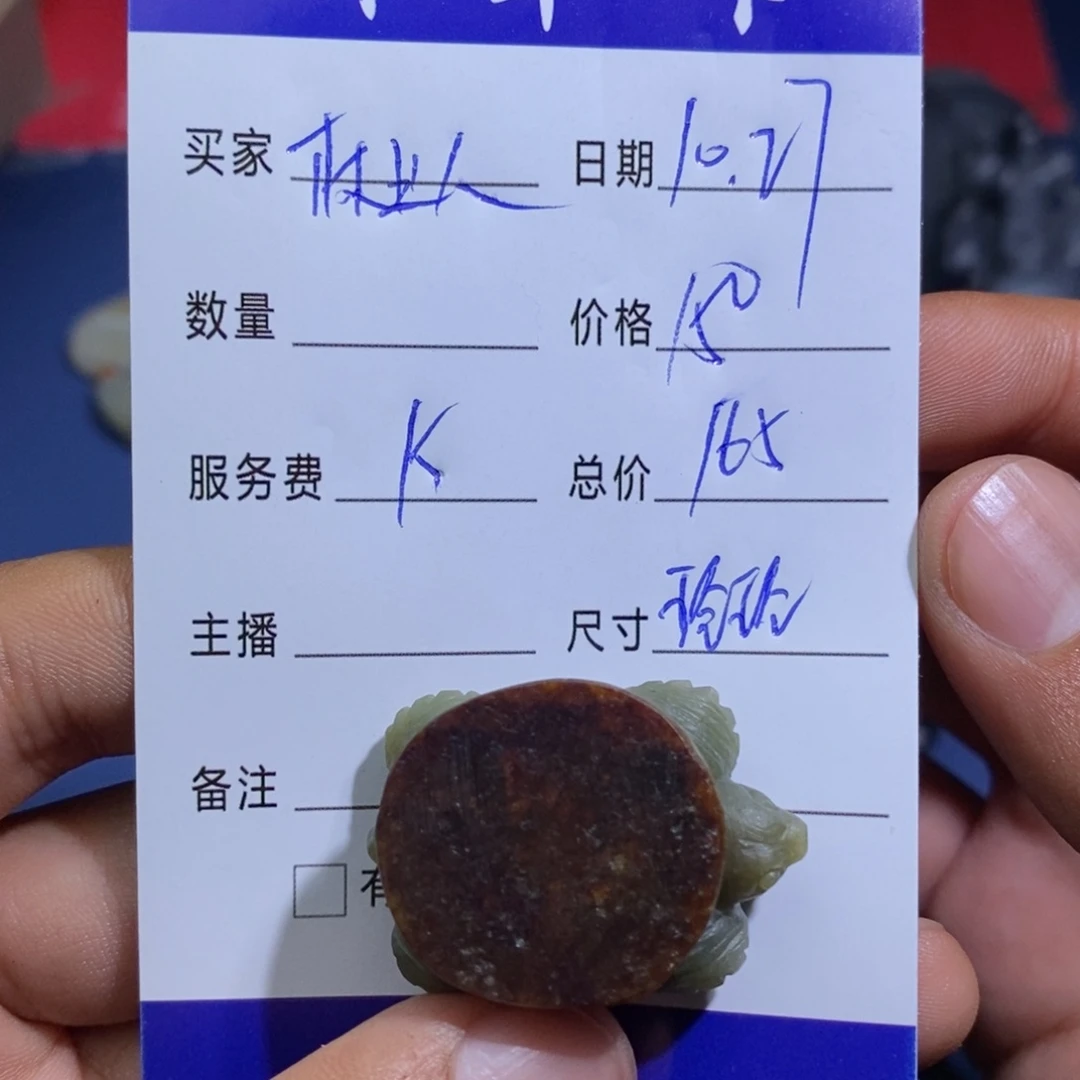 买家 林业人 日期 10.27
数量 价格 150
服务费 K 总价 165
主播 尺寸 玲玲
备注
有